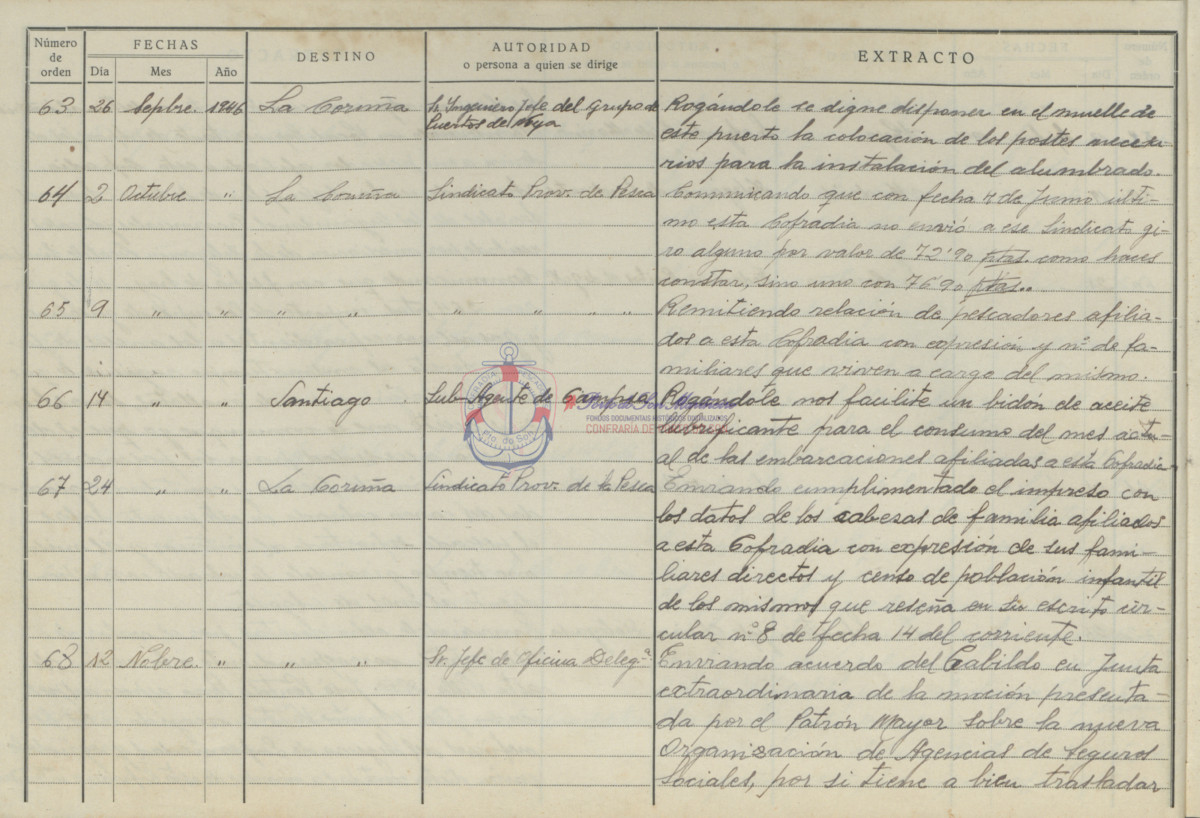 Número de orden
FECHAS
Día Mes Año
DESTINO
AUTORIDAD
o persona a quien se dirige
EXTRACTO
63 26 Sepbre. 1946 La Coruña Sr. Ingeniero Jefe del Grupo de Rogándole se digne disponer en el muelle de
Puertos de Noya este puerto la colocación de los postes necesa-
rios para la instalación del alumbrado.
64 2 Octubre " La Coruña Sindicato Prov. de Pesca Comunicando que con fecha 7 de Junio últi-
mo esta Cofradia no envió a ese Sindicato gi-
ro alguno por valor de 72'90 ptas. como haces
constar, sino uno con 76'90 ptas..
65 9 " " " " " " " " Remitiendo relación de pescadores afilia-
dos a esta Cofradia con expresión y nº de fa-
miliares que viven a cargo del mismo.
66 14 " " Santiago Sub-Agente de Campsa Rogándole nos facilite un bidón de aceite
lubrificante para el consumo del mes actu-
al de las embarcaciones afiliadas a esta Cofradia
67 24 " " La Coruña Sindicato Prov. de la Pesca Enviando cumplimentado el impreso con
los datos de los cabezas de familia afiliados
a esta Cofradia con expresión de sus fami-
liares directos y censo de población infantil
de los mismos que reseña en su escrito cir-
cular nº 8 de fecha 14 del corriente.
68 12 Nobre. " " " Sr. Jefe de Oficina Delegª Enviando acuerdo del Cabildo en Junta
extraordinaria de la moción presenta-
da por el Patrón Mayor sobre la nueva
Organización de Agencias de Seguros
Sociales, por si tiene a bien trasladar
Pto. do Son
FONDOS DOCUMENTAIS HISTÓRICOS DIGITALIZADOS
CONFRARÍA DE